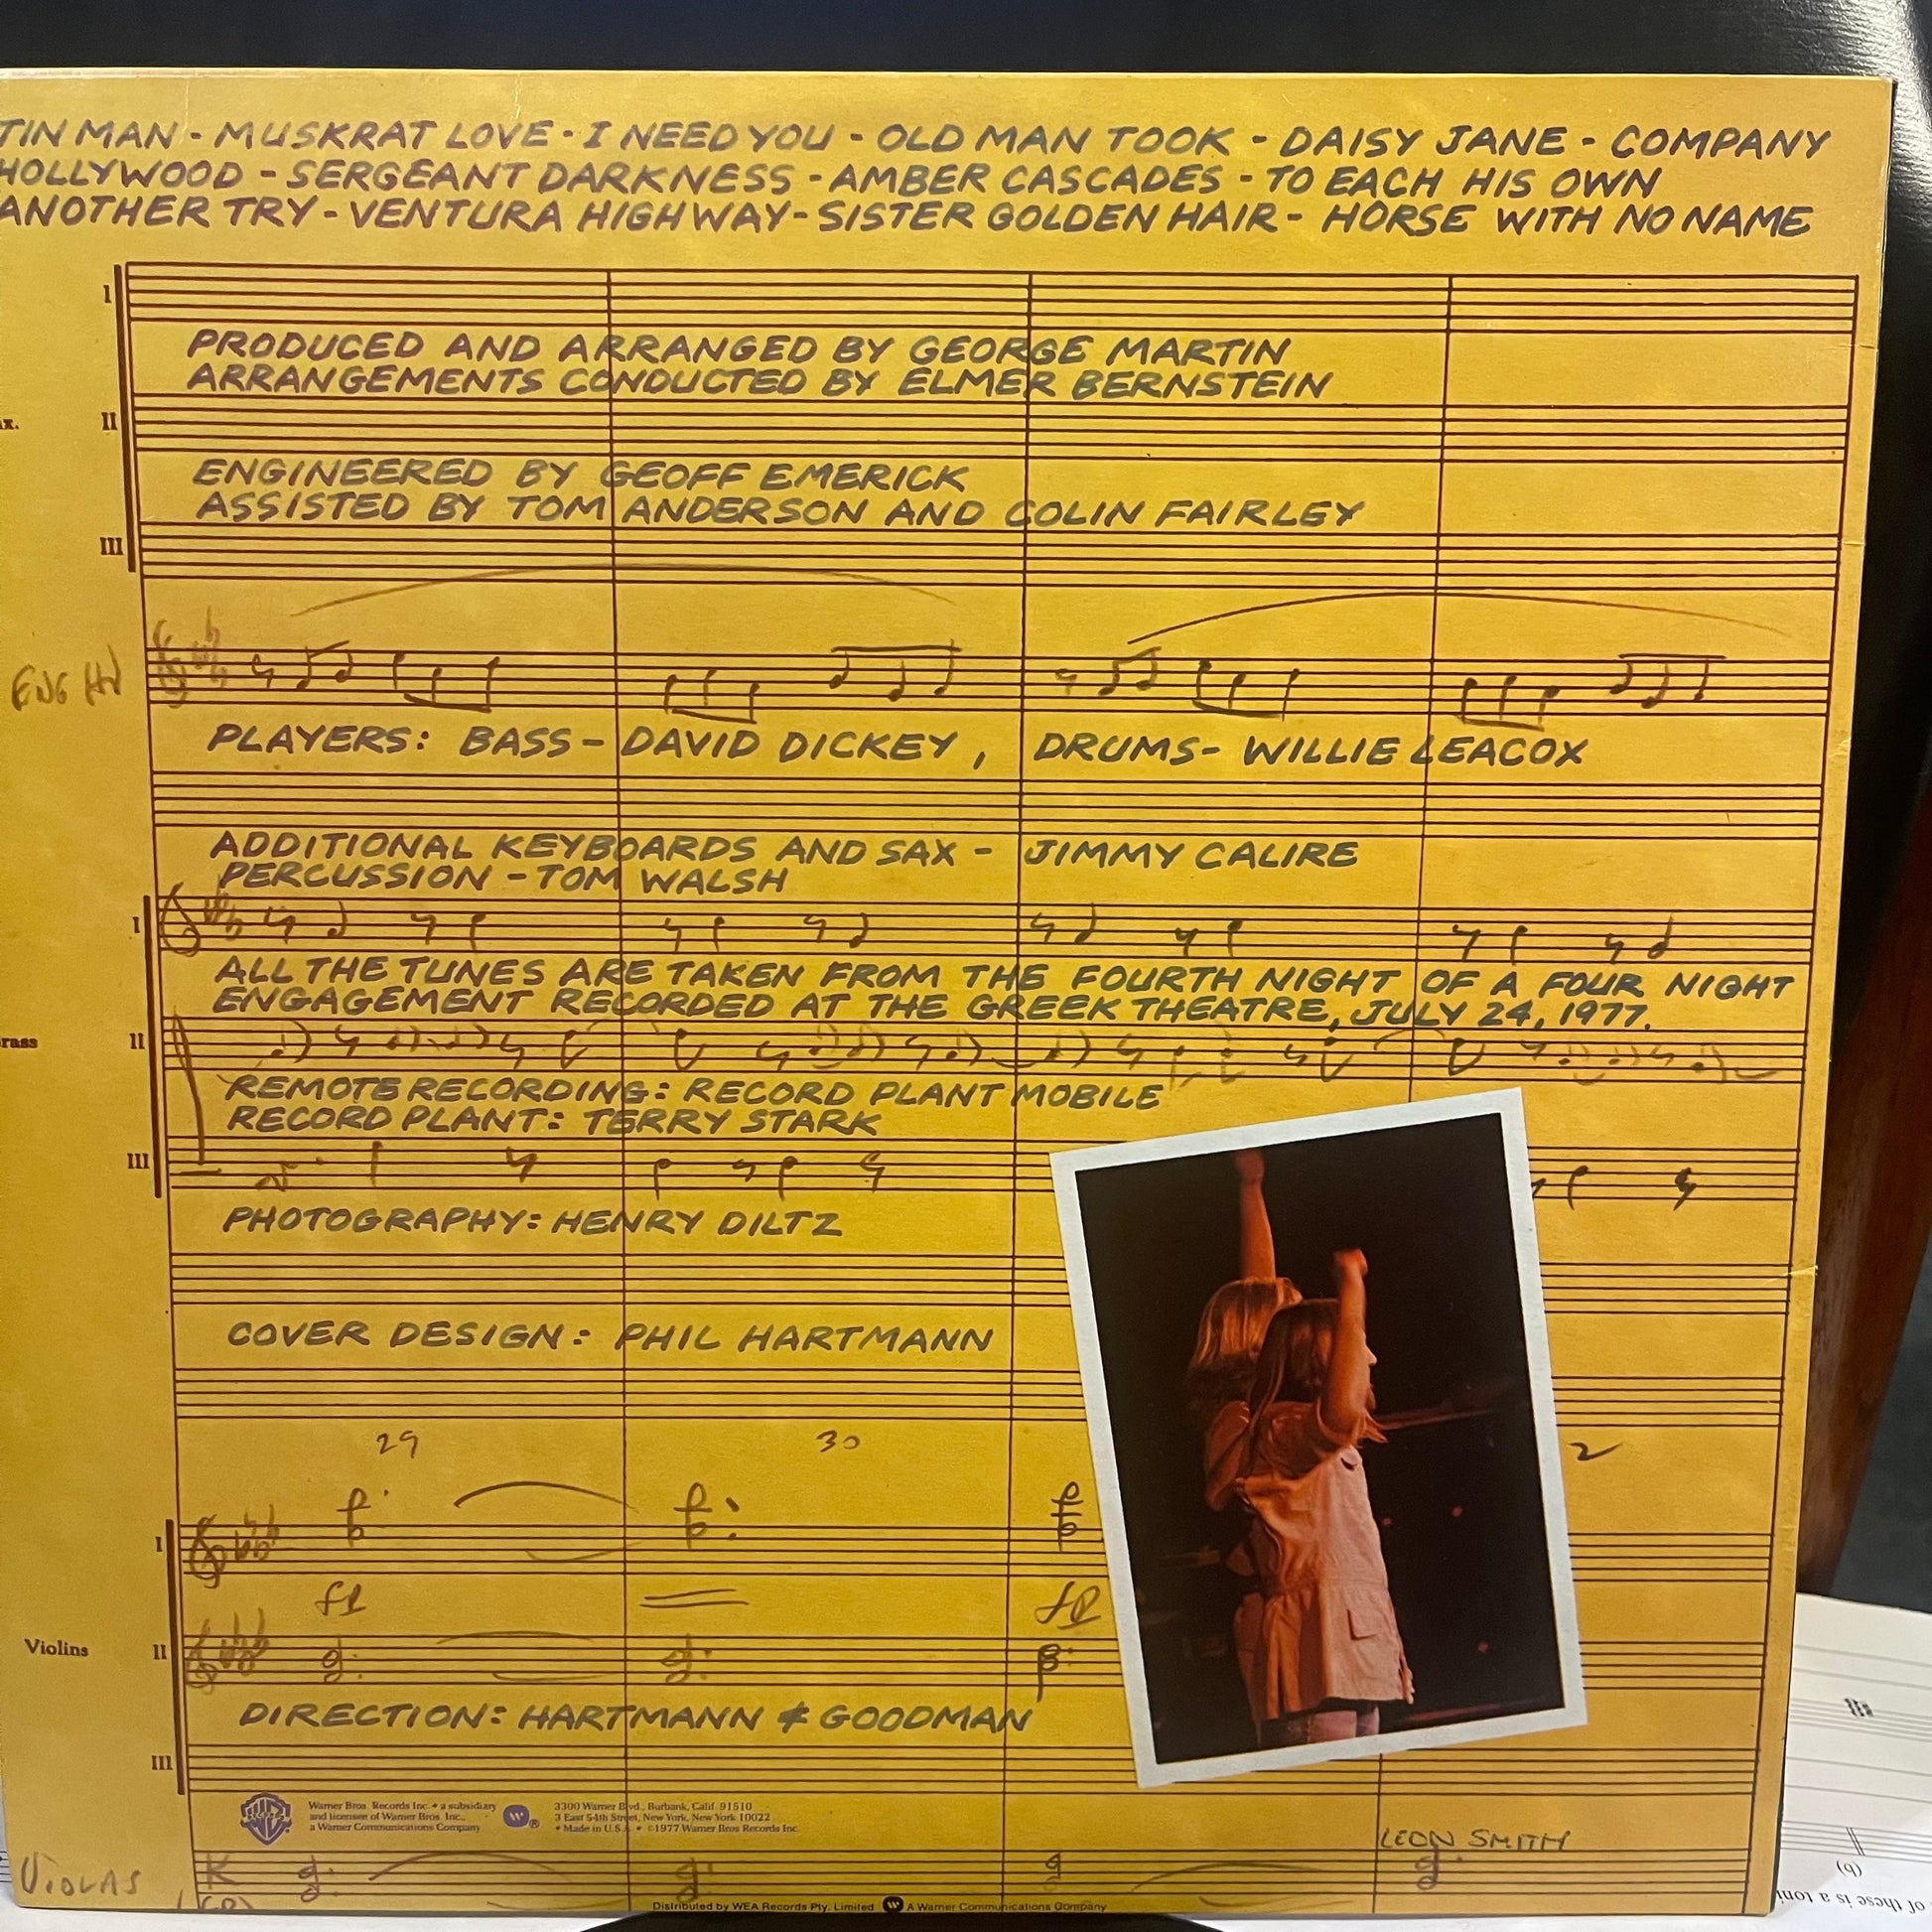 TIN MAN - MUSKRAT LOVE - I NEED YOU - OLD MAN TOOK - DAISY JANE - COMPANY
HOLLYWOOD - SERGEANT DARKNESS - AMBER CASCADES - TO EACH HIS OWN
ANOTHER TRY - VENTURA HIGHWAY - SISTER GOLDEN HAIR - HORSE WITH NO NAME
I
PRODUCED AND ARRANGED BY GEORGE MARTIN
ARRANGEMENTS CONDUCTED BY ELMER BERNSTEIN
II
ENGINEERED BY GEOFF EMERICK
ASSISTED BY TOM ANDERSON AND COLIN FAIRLEY
III
ENG
PLAYERS: BASS - DAVID DICKEY, DRUMS - WILLIE LEACOX
ADDITIONAL KEYBOARDS AND SAX - JIMMY CALIRE
PERCUSSION - TOM WALSH
I
ALL THE TUNES ARE TAKEN FROM THE FOURTH NIGHT OF A FOUR NIGHT
ENGAGEMENT RECORDED AT THE GREEK THEATRE, JULY 24, 1977.
rass II
REMOTE RECORDING: RECORD PLANT MOBILE
RECORD PLANT: TERRY STARK
III
PHOTOGRAPHY: HENRY DILTZ
COVER DESIGN: PHIL HARTMANN
29 30 2
I
fp fp
Violins II
DIRECTION: HARTMANN & GOODMAN
III
Warner Bros. Records Inc. • a subsidiary
and licensee of Warner Bros. Inc.,
a Warner Communications Company
3300 Warner Blvd., Burbank, Calif. 91510
3 East 54th Street, New York, New York 10022
• Made in U.S.A. • ©1977 Warner Bros Records Inc.
LEON SMITH
VIOLAS
Distributed by WEA Records Pty. Limited A Warner Communications Company
(b)
of these is a toni